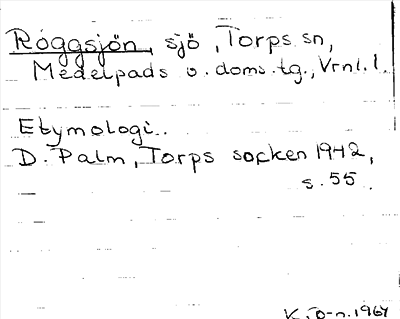 Röggsjön, sjö, Torps sn,
Medelpads v. doms. tg., Vrnl. l.
Etymologi.
D. Palm, Torps socken 1942,
s. 55.
K. Ö-n. 1964